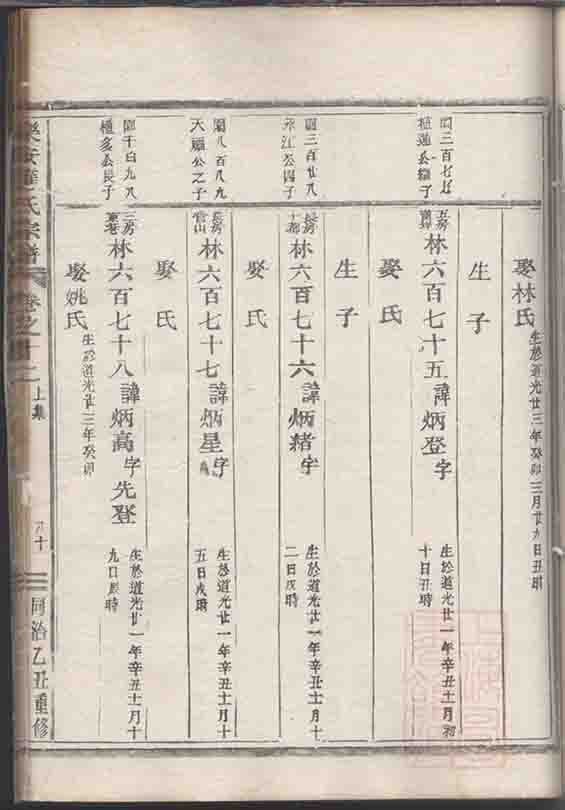 娶林氏 生於道光廿三年癸卯三月廿九日丑時
生子
閏三百七十
林六百七十五諱炳登字 生於道光廿一年辛丑十二月初十日丑時
娶氏
生子
閏三百廿八 永江公四子
長房 林六百七十六諱炳緒字 生於道光廿一年辛丑十二月十二日戌時
娶氏
閏八百八九 大 公之子
長房 林六百七十七諱炳星字 生於道光廿一年辛丑十二月十五日戌時
娶氏
閏千百九八 公長子
三房 東巷 林六百七十八諱炳高字先登 生於道光廿一年辛丑十二月十九日辰時
娶姚氏 生於道光廿三年癸卯
樂安 氏宗譜 卷之十二 上集 八十 同治乙丑重修